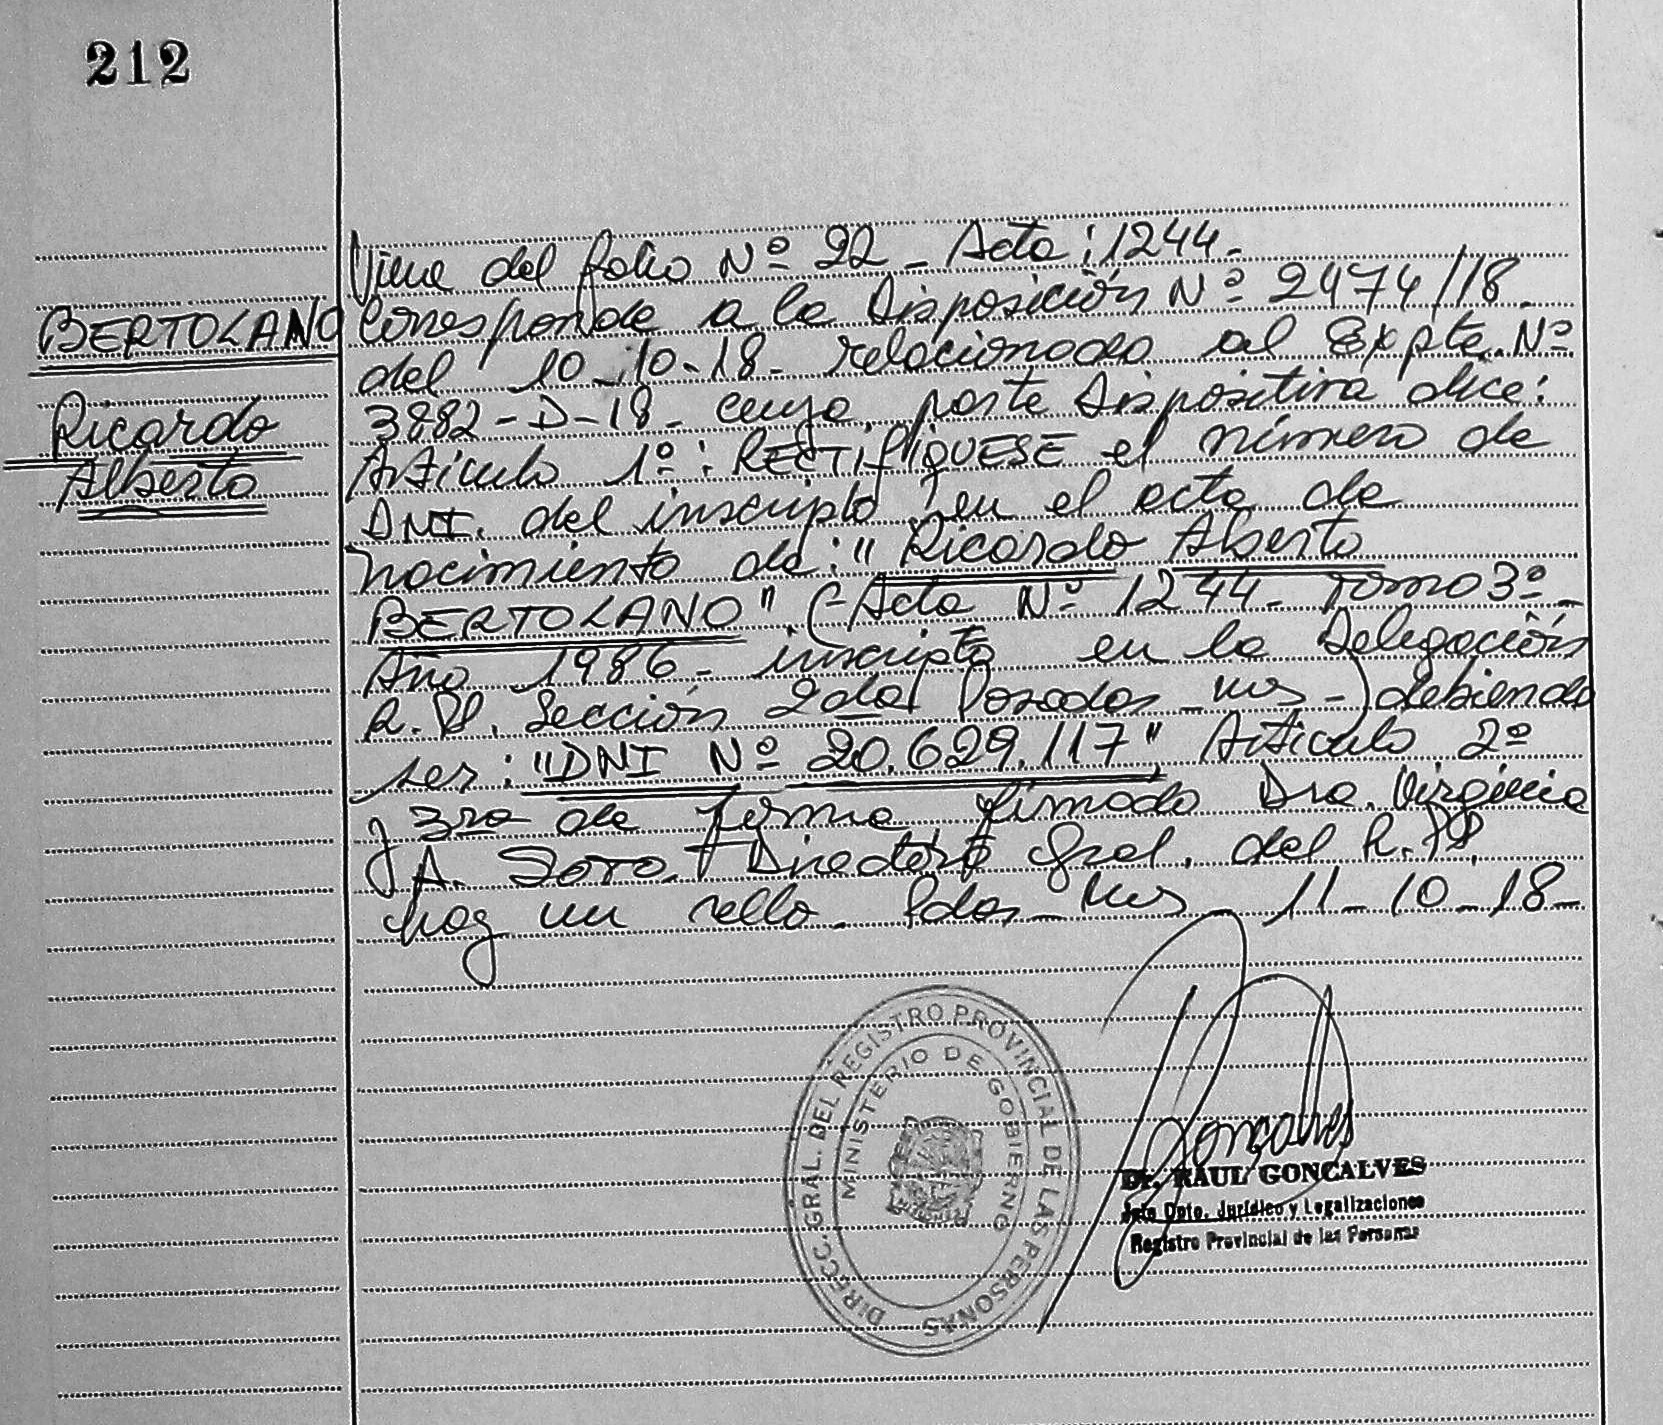 212
BERTOLANO
Ricardo
Alberto
Viene del folio Nº 22 - Acta: 1244.-
Corresponde a la Disposición Nº 2474/18.
del 10-10-18- relacionado al Expte. Nº
3882-D-18- cuya parte Dispositiva dice:
Artículo 1º: RECTIFIQUESE el número de
DNI. del inscripto en el acta de
nacimiento de: "Ricardo Alberto
BERTOLANO". (-Acta Nº 1244- Tomo 3º-
Año 1986- inscripta en la Delegación
R.P. Sección 2da Posadas - Mnes -) debiendo
ser: "DNI Nº 20.629.117", Artículo 2º
y 3ro de forma firmado Dra. Virginia
A. SOTO. Directora Gral. del R.P.P.
hay un sello. Pdas - Mnes - 11-10-18-
DIRECC. GRAL. DEL REGISTRO PROVINCIAL DE LAS PERSONAS
MINISTERIO DE GOBIERNO
Goncalves
Dr. RAUL GONCALVES
Jefe Dpto. Jurídico y Legalizaciones
Registro Provincial de las Personas